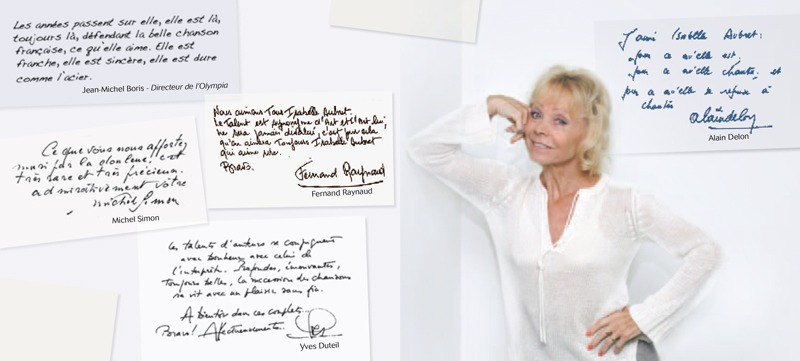 Les années passent sur elle, elle est là,
toujours là, défendant la belle chanson
française, ce qu'elle aime. Elle est
franche, elle est sincère, elle est dure
comme l'acier.
Jean-Michel Boris - Directeur de l'Olympia
Ce que vous nous apportez
est
très rare et très précieux.
admirativement vôtre
Michel Simon
Michel Simon
Nous aimons Tous Isabelle Aubret.
Le Talent est synonyme d'Art et l'Art lui,
ne sera jamais dévalué, c'est pour cela
qu'on aimera Toujours Isabelle Aubret
qui aime
Bravo.
Fernand Raynaud
Fernand Raynaud
Les talents d'auteurs se conjuguent
avec bonheur avec celui de
l'interprète. Profondes, émouvantes,
toujours belles, la succession des chansons
se vit avec un plaisir sans fin.
A bientôt dans ces couplets...
Bravo! Affectueusement.
Yves Duteil
J'aime Isabelle Aubret:
pour ce qu'elle est,
pour ce qu'elle chante, et
pour ce qu'elle se refuse à
chanter
Alain Delon
Alain Delon